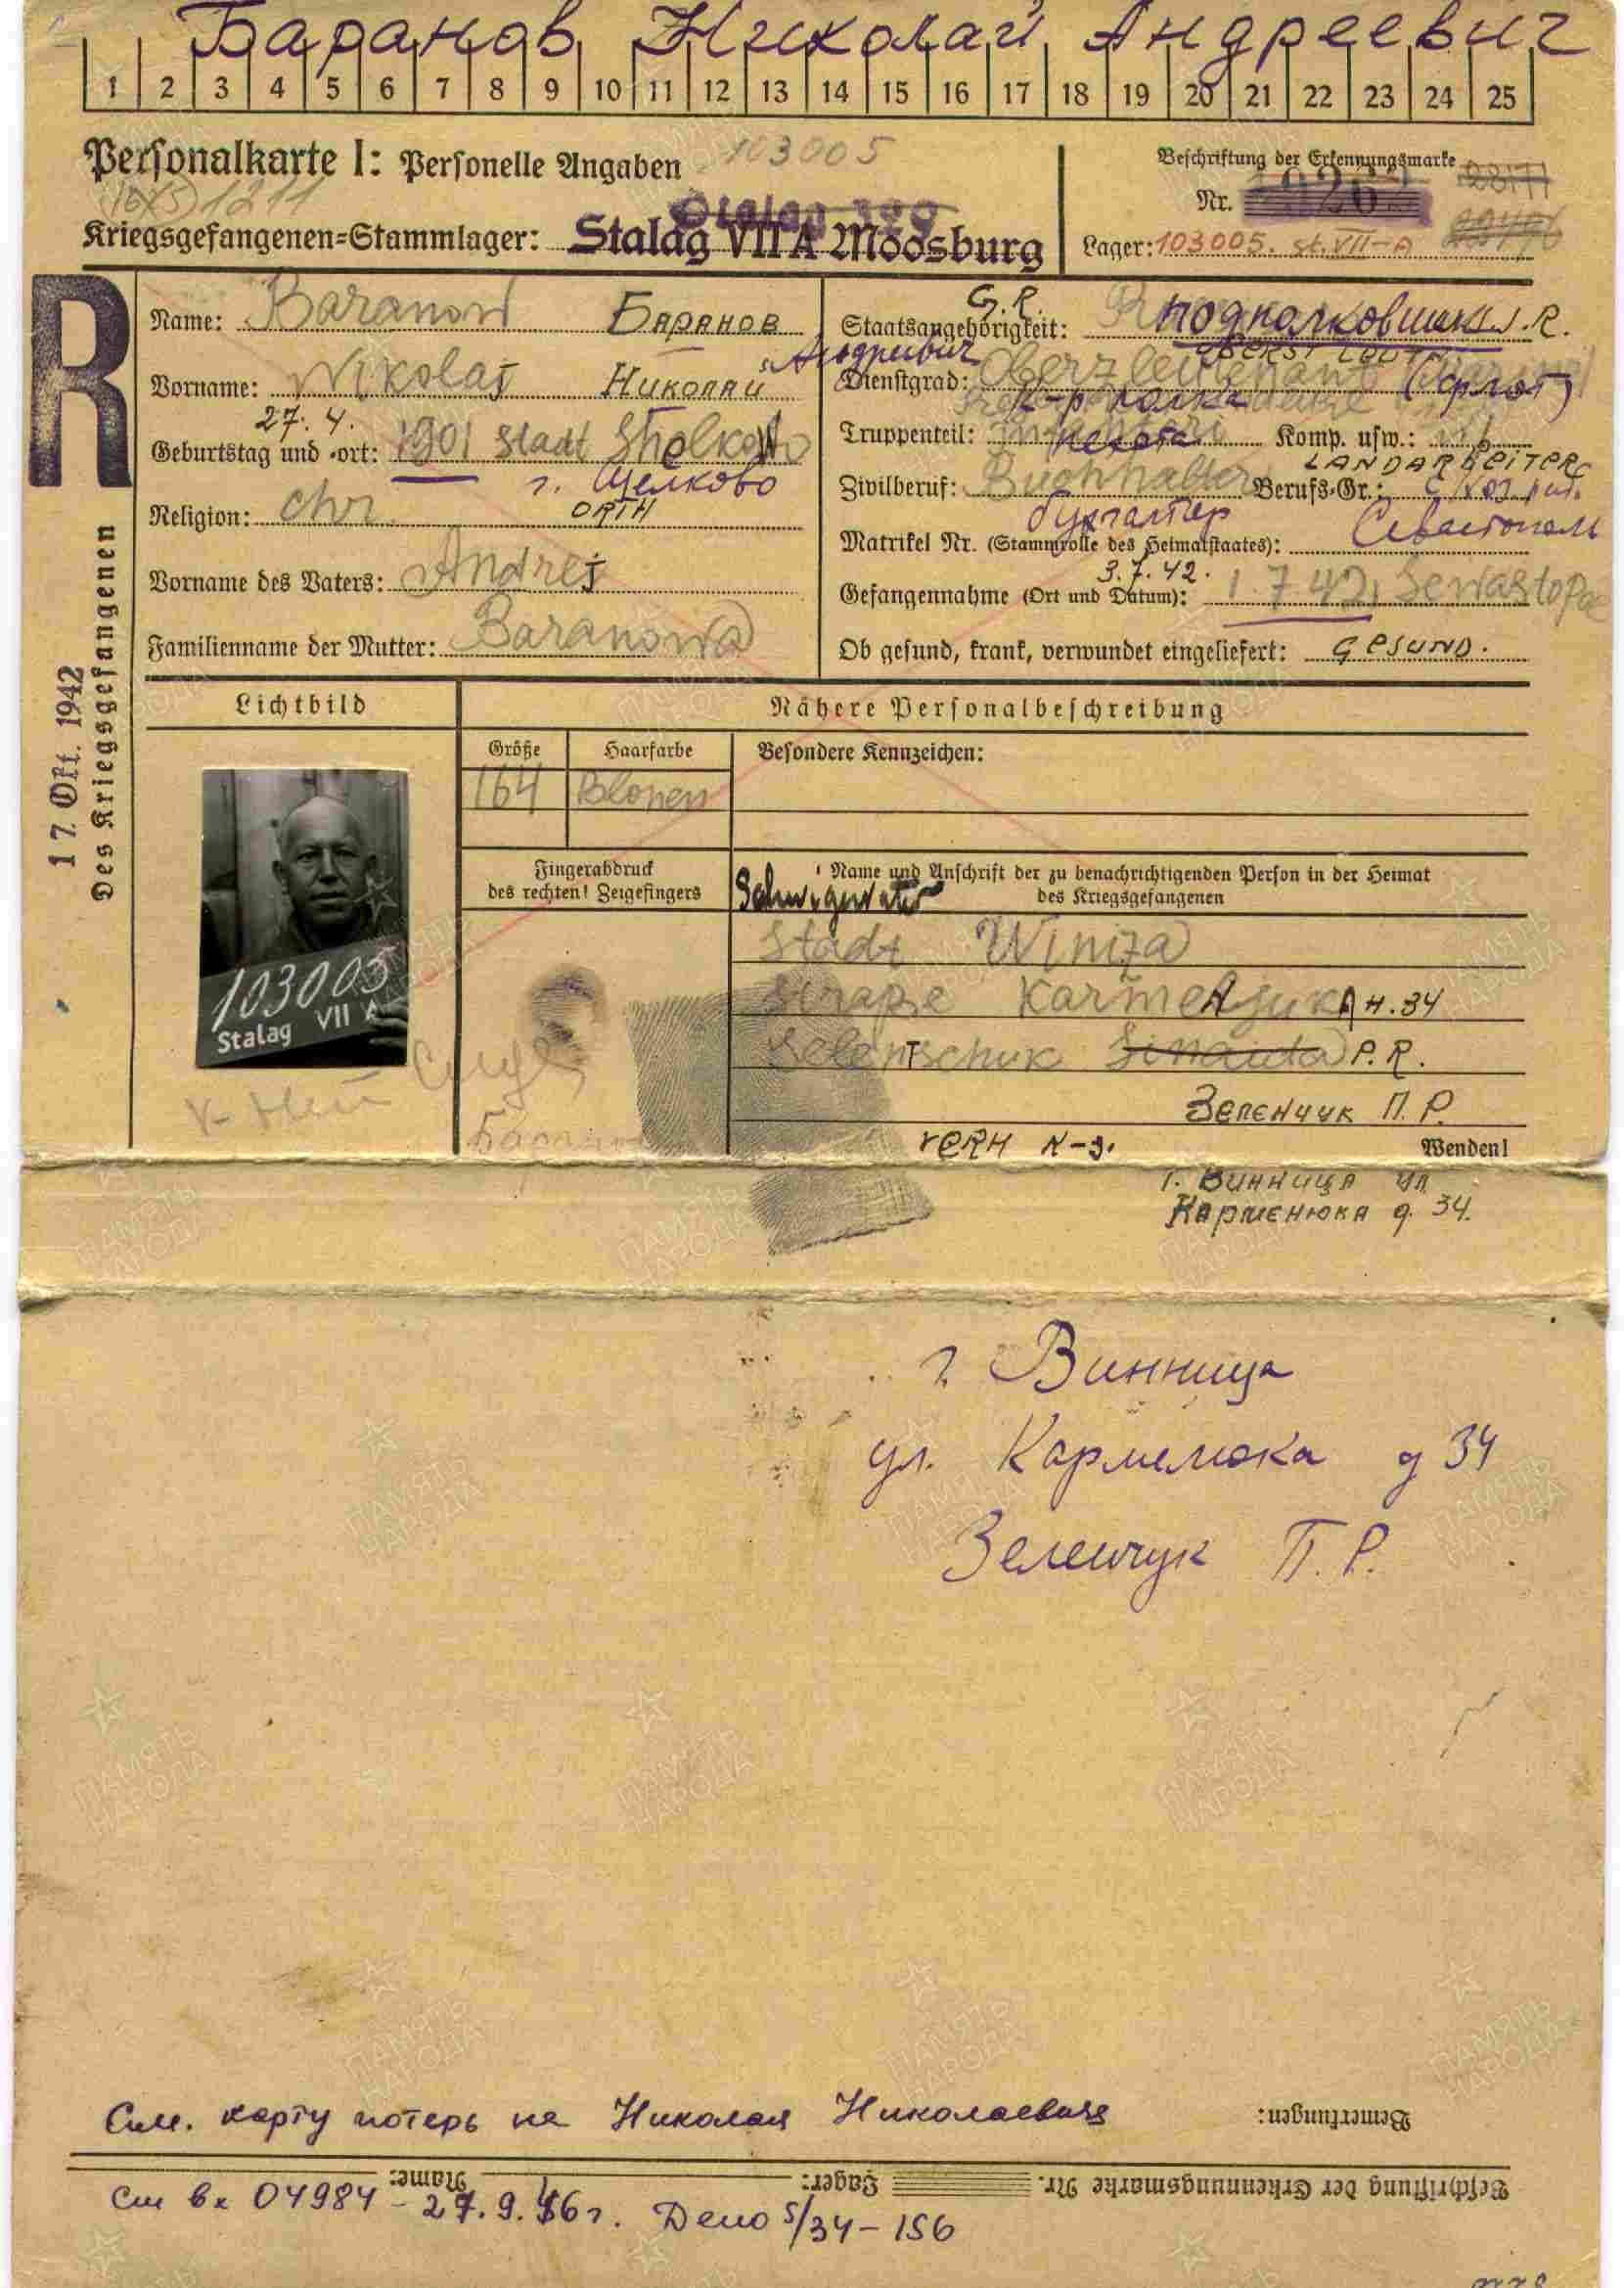 Баранов Николай Андреевич
1 2 3 4 5 6 7 8 9 10 11 12 13 14 15 16 17 18 19 20 21 22 23 24 25
Personalkarte I: Personelle Angaben 103005
Beschriftung der Erkennungsmarke
1211
Nr.
Kriegsgefangenen=Stammlager: Stalag VII A Moosburg
Lager: 103005. St. VII-A
R
Name: Baranow Баранов
Vorname: Nikolaj Николай Андреевич
27.4.
Geburtstag und -ort: 1901 Stadt
г. Щелково
Religion: Chr. ORTH
Vorname des Vaters: Andrej
Familienname der Mutter: Baranowa
Staatsangehörigkeit: подполковник
Dienstgrad: Oberstleutenant
к-р полка (флот)
Truppenteil: пехота Komp. usw.:
LANDARBEITER
Zivilberuf: Buchhalter Berufs-Gr.:
бухгалтер
Matrikel Nr. (Stammrolle des Heimatstaates): Севастополь
3.7.42.
Gefangennahme (Ort und Datum): 1.7.42, Sewastopol
Ob gesund, krank, verwundet eingeliefert: GESUND.
17. Okt. 1942
Des Kriegsgefangenen
Lichtbild
Nähere Personalbeschreibung
Größe Haarfarbe Besondere Kennzeichen:
164
Fingerabdruck
des rechten! Zeigefingers
Name und Anschrift der zu benachrichtigenden Person in der Heimat
des Kriegsgefangenen
Stadt Winiza
H. 34
Selentschuk P. R.
Зеленчук П. Р.
103005
Stalag VII A
Wenden!
г. Винница ул
Карменюка д. 34.
г. Винница
ул. Кармелюка д 34
Зеленчук П. Р.
См. карту потерь на Николая Николаевича
Bemerkungen:
Beschriftung der Erkennungsmarke Nr. Lager: Name:
См вх 04984 - 27.9.46 г. Дело 5/34-156
ПАМЯТЬ НАРОДА